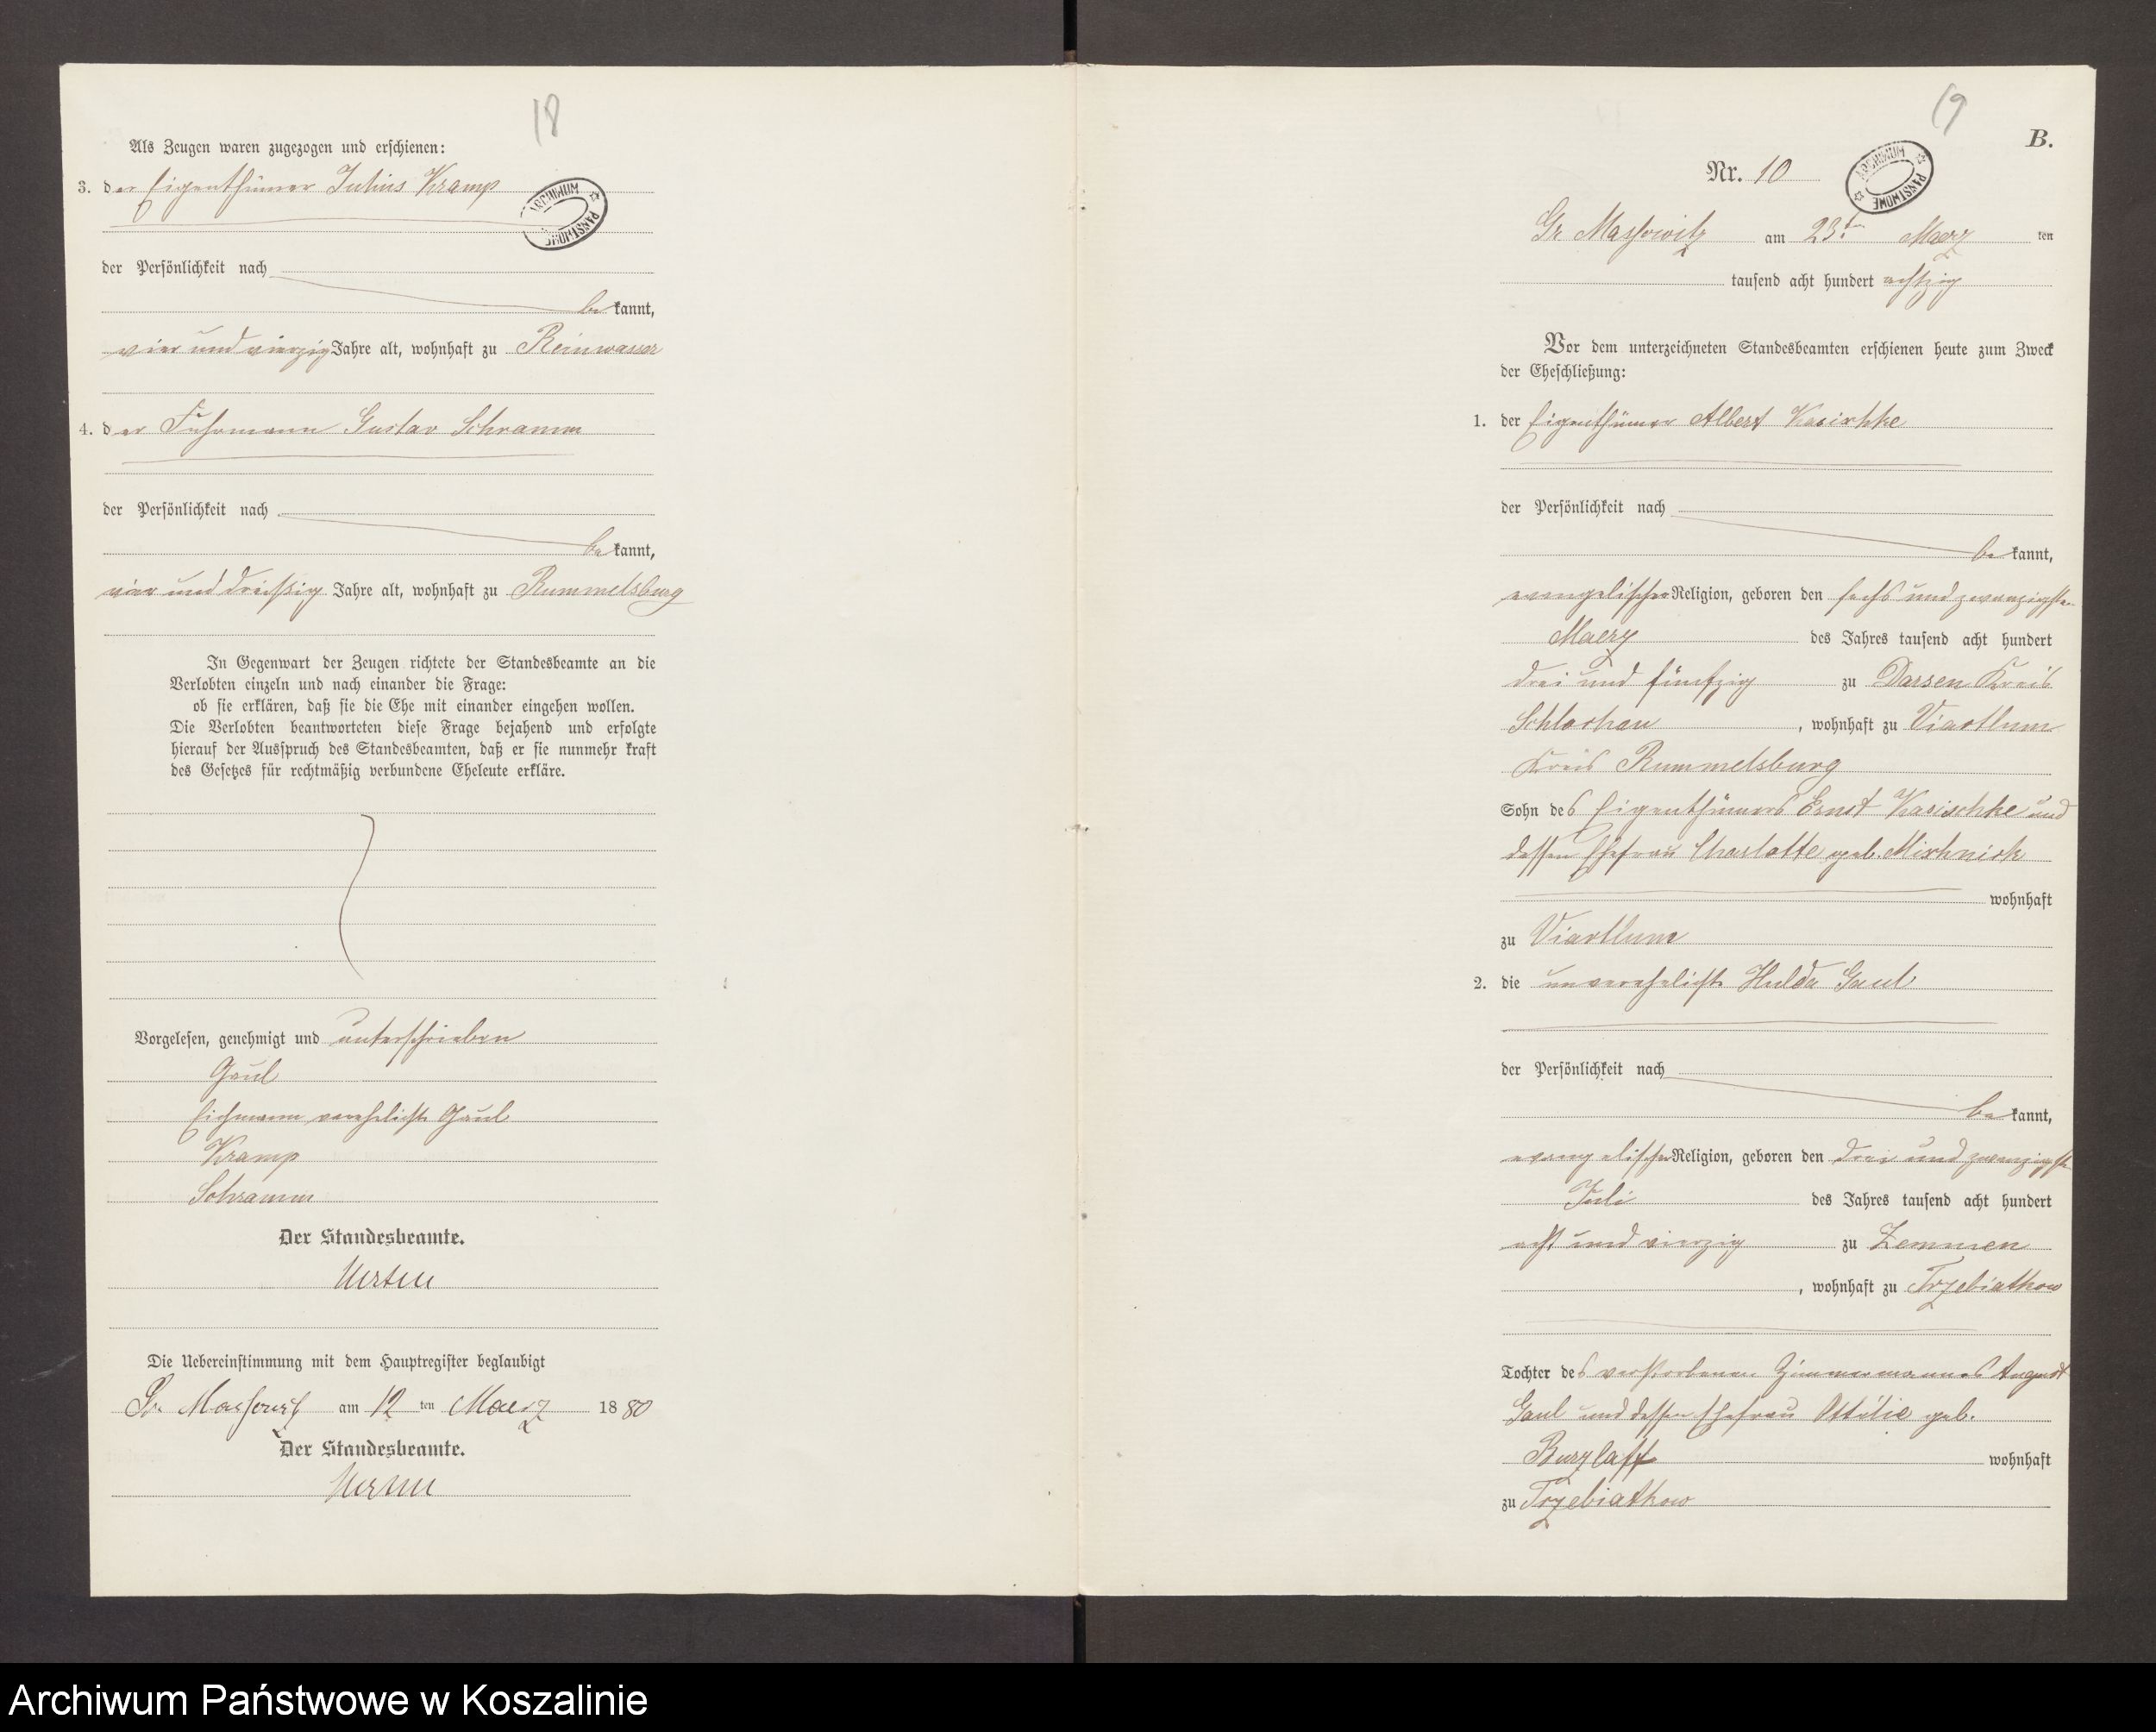 18
Als Zeugen waren zugezogen und erschienen:
3. der Eigenthümer Julius Kramp
ARCHIWUM PAŃSTWOWE
der Persönlichkeit nach
bekannt,
vier und vierzig Jahre alt, wohnhaft zu Reinwasser
4. der Fuhrmann Gustav Schramm
der Persönlichkeit nach
bekannt,
vier und dreißig Jahre alt, wohnhaft zu Rummelsburg
In Gegenwart der Zeugen richtete der Standesbeamte an die
Verlobten einzeln und nach einander die Frage:
ob sie erklären, daß sie die Ehe mit einander eingehen wollen.
Die Verlobten beantworteten diese Frage bejahend und erfolgte
hierauf der Ausspruch des Standesbeamten, daß er sie nunmehr kraft
des Gesetzes für rechtmäßig verbundene Eheleute erkläre.
Vorgelesen, genehmigt und unterschrieben
Gaul
Eichmann verehelichte Gaul
Kramp
Schramm
Der Standesbeamte.
Die Uebereinstimmung mit dem Hauptregister beglaubigt
Gr. Massowitz am 12 ten Maerz 1880
Der Standesbeamte.
19
B.
Nr. 10
ARCHIWUM PAŃSTWOWE
Gr Massowitz am 23t Maerz ten
tausend acht hundert achtzig
Vor dem unterzeichneten Standesbeamten erschienen heute zum Zweck
der Eheschließung:
1. der Eigenthümer Albert Kasischke
der Persönlichkeit nach
bekannt,
evangelischer Religion, geboren den sechs und zwanzigsten
Maerz des Jahres tausend acht hundert
drei und fünfzig zu Darsen Kreis
Schlochau, wohnhaft zu Viartlum
Kreis Rummelsburg
Sohn des Eigenthümers Ernst Kasischke und
dessen Ehefrau Charlotte geb. Mischnick
wohnhaft
zu Viartlum
2. die unverehelichte Hulda Gaul
der Persönlichkeit nach
bekannt,
evangelischer Religion, geboren den drei und zwanzigsten
Juli des Jahres tausend acht hundert
acht und vierzig zu Zemmen
, wohnhaft zu Trzebiatkow
Tochter des verstorbenen Zimmermannes August
Gaul und dessen Ehefrau Ottilie geb.
Burzlaff wohnhaft
zu Trzebiatkow
Archiwum Państwowe w Koszalinie